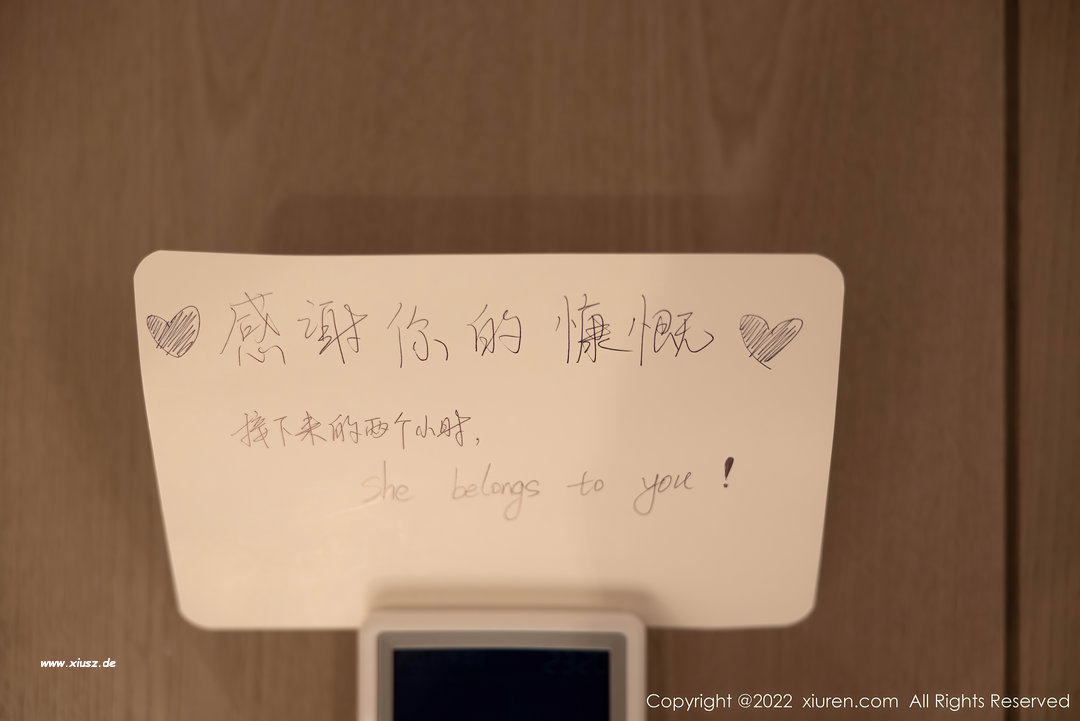 感谢你的慷慨
接下来的两个小时,
she belongs to you!
www.xiusz.de
Copyright @2022 xiuren.com All Rights Reserved